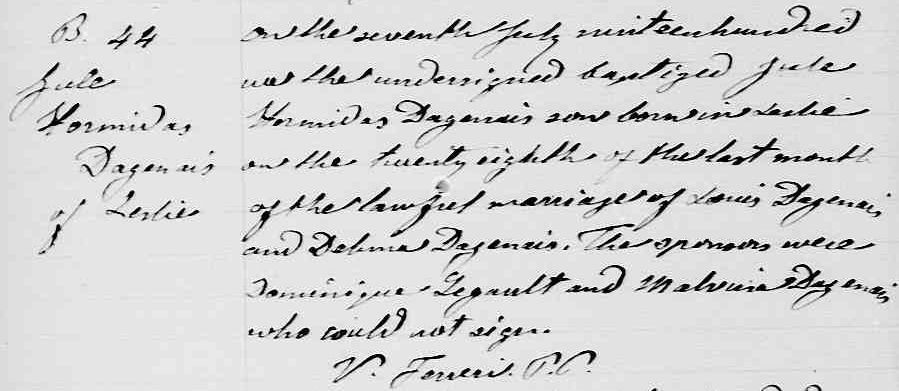 B. 44
Jule
Hormidas
Dagenais
of Leslie
on the seventh July nineteenhundred
we the undersigned baptized Jule
Hormidas Dagenais son born in Leslie
on the twenty eighth of the last month
of the lawful marriage of Louis Dagenais
and Delima Dagenais. The sponsors were
Dominique Legault and Malvina Dagenais
who could not sign.
V. Ferreri. P.P.